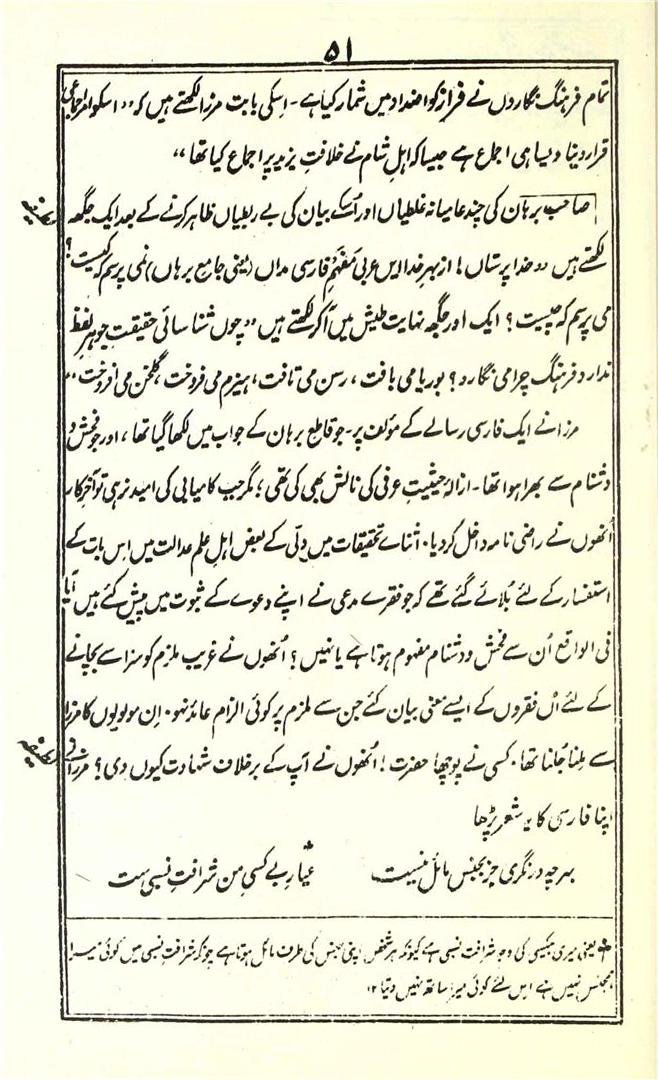 ۵۱
تمام فرہنگ نگاروں نے فراز کو اضداد میں شمار کیا ہے۔ اِسکی بابت مرزا لکھتے ہیں کہ "اسکو امر اجماعی
قرار دینا ویسا ہی اجماع ہے جیسا کہ اہلِ شام نے خلافتِ یزید پر اجماع کیا تھا"
صاحبِ برہان کی چند عامیانہ غلطیاں اور اُسکے بیان کی بے ربطیاں ظاہر کرنے کے بعد ایک جگھ
لکھتے ہیں "خدا پرستاں! از بہرِ خدا ایں عربی مفہم فارسی مداں (یعنی جامع برہاں) نمی پرسم کہ کیست؟
می پرسم کہ چیست؟ ایک اور جگھ نہایت طیش میں آکر لکھتے ہیں "چوں شناسائی حقیقتِ جوہرِ لفظ
ندارد فرہنگ چرا می نگارد؟ بوریا می بافت، رسن می تافت، ہیزم می فروخت، گلخن می افروخت"
مرزا نے ایک فارسی رسالے کے مؤلف پر۔ جو قاطع برہان کے جواب میں لکھا گیا تھا، اور جو فحش و
دشنام سے بھرا ہوا تھا۔ ازالۂ حیثیتِ عرفی کی نالش بھی کی تھی؛ مگر جب کامیابی کی امید نرہی تو آخر کار
اُنھوں نے راضی نامہ داخل کردیا۔ اثناے تحقیقات میں دلّی کے بعض اہلِ علم عدالت میں اِس بات کے
استفسار کے لئے بُلائے گئے تھے کہ جو فقرے مدعی نے اپنے دعوے کے ثبوت میں پیش کئے ہیں آیا
فی الواقع اُن سے فحش و دشنام مفہوم ہوتا ہے یا نہیں؟ اُنھوں نے غریب ملزم کو سزا سے بچانے
کے لئے اُن فقروں کے ایسے معنی بیان کئے جن سے ملزم پر کوئی الزام عائد نہو۔ اِن مولویوں کا مرزا
سے مِلنا جُلنا تھا۔ کسی نے پوچھا حضرت! اُنھوں نے آپ کے برخلاف شہادت کیوں دی؟ مرزا نے
اپنا فارسی کا یہ شعر پڑھا
بہرچہ در نگری جز بجنس مائل نیست عیارِ بے کسیِ من شرافتِ نسبی ست
یعنی میری بیکسی کی وجہ شرافتِ نسبی ہے کیونکہ ہر شخص اپنی جنس کی طرف مائل ہوتا ہے چونکہ شرافتِ نسبی میں کوئی میرا
ہمجنس نہیں ہے اِس لئے کوئی میرا ساتھ نہیں دیتا ۱۲